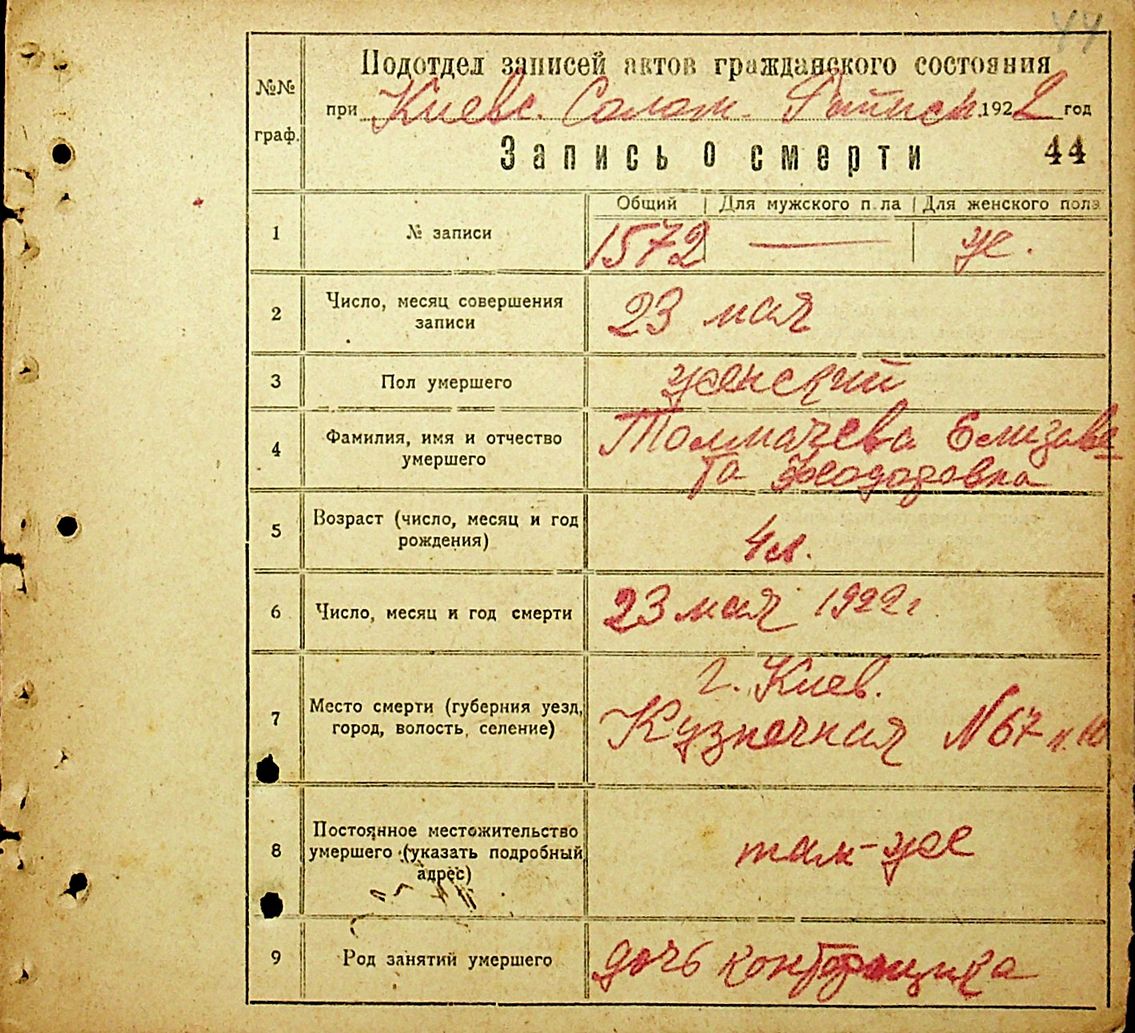 44
№№ граф.
Подотдел записей актов гражданского состояния
при Киевс. Солом. 1922 год
Запись о смерти 44
Общий Для мужского п ла Для женского пола
1 № записи 1572 — ж.
2 Число, месяц совершения записи 23 мая
3 Пол умершего женский
4 Фамилия, имя и отчество умершего Толмачева Елизаве
та Феодоровна
5 Возраст (число, месяц и год рождения) 4 л.
6 Число, месяц и год смерти 23 мая 1922 г
7 Место смерти (губерния уезд, город, волость, селение) г. Киев.
Кузнечная N 67
8 Постоянное местожительство умершего (указать подробный адрес) там-же
9 Род занятий умершего дочь конторщика